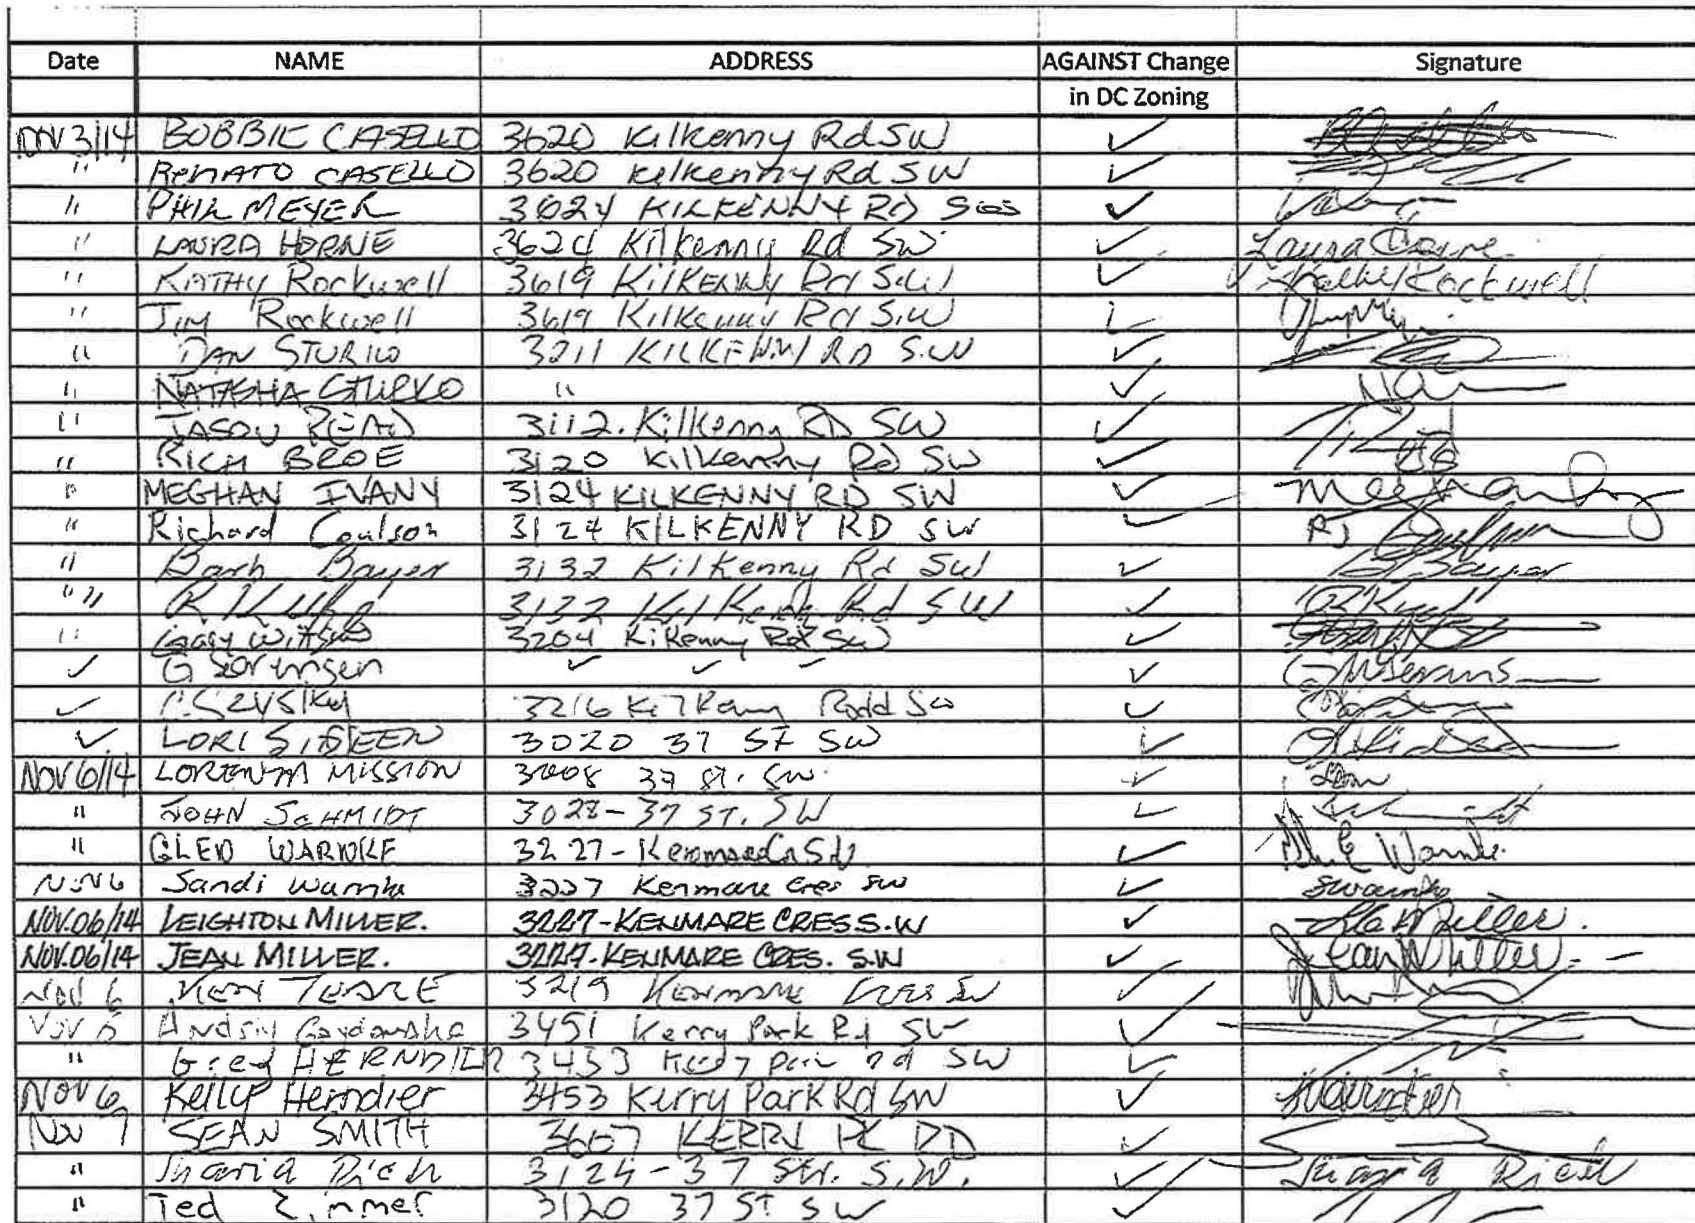 Date NAME ADDRESS AGAINST Change Signature
in DC Zoning
NOV 3/14 BOBBIE CASELLO 3620 Kilkenny Rd SW ✓
" RENATO CASELLO 3620 Kilkenny Rd SW ✓
" PHIL MEYER 3624 KILKENNY RD ✓
" LAURA HORNE 3624 Kilkenny Rd SW ✓ Laura Horne
" KATHY Rockwell 3619 KILKENNY Rd S.W ✓ Kathy Rockwell
" JIM Rockwell 3619 Kilkenny Rd S.W ✓
" DAN STURKO 3211 KILKENNY RD S.W ✓
" NATASHA STURKO " ✓
" JASON READ 3112. Kilkenny RD SW ✓
" RICH BROE 3120 Kilkenny Rd SW ✓
" MEGHAN IVANY 3124 KILKENNY RD SW ✓
" Richard Coulson 3124 KILKENNY RD SW ✓ RJ
" Barb Bayer 3132 Kilkenny Rd SW ✓ B Bayer
" " 3132 Rd SW ✓
" Gary 3204 Kilkenny Rd SW ✓
✓ G Sorensen ✓ ✓ ✓ ✓
✓ 3216 Kilkenny Road SW ✓
✓ LORI 3020 37 St SW ✓
NOV 6/14 MISSION 37 St. SW ✓
" JOHN SCHMIDT 3028-37 ST. SW ✓
" GLEN WARNKE 3227- Kenmare Cr SW ✓
NOV 6 Sandi Warnke 3227 Kenmare Cres SW ✓ SWarnke
NOV.06/14 LEIGHTON MILLER. 3227-KENMARE CRES S.W ✓ Miller.
NOV.06/14 JEAN MILLER. 3227-KENMARE CRES. S.W ✓ Jean Miller
NOV 6 KEN 3219 KENMARE CRES SW ✓
NOV 6 3451 Kerry Park Rd SW ✓
" Greg HERNDIER Rd SW ✓
NOV 6 Kelly Herndier 3453 Kerry Park Rd SW ✓ KHerndier
Nov 7 SEAN SMITH 3607 KERRY PK RD ✓
" Rich 3124-37 Str. S.W. ✓ Rich
" Ted Zimmer 3120 37 ST SW ✓